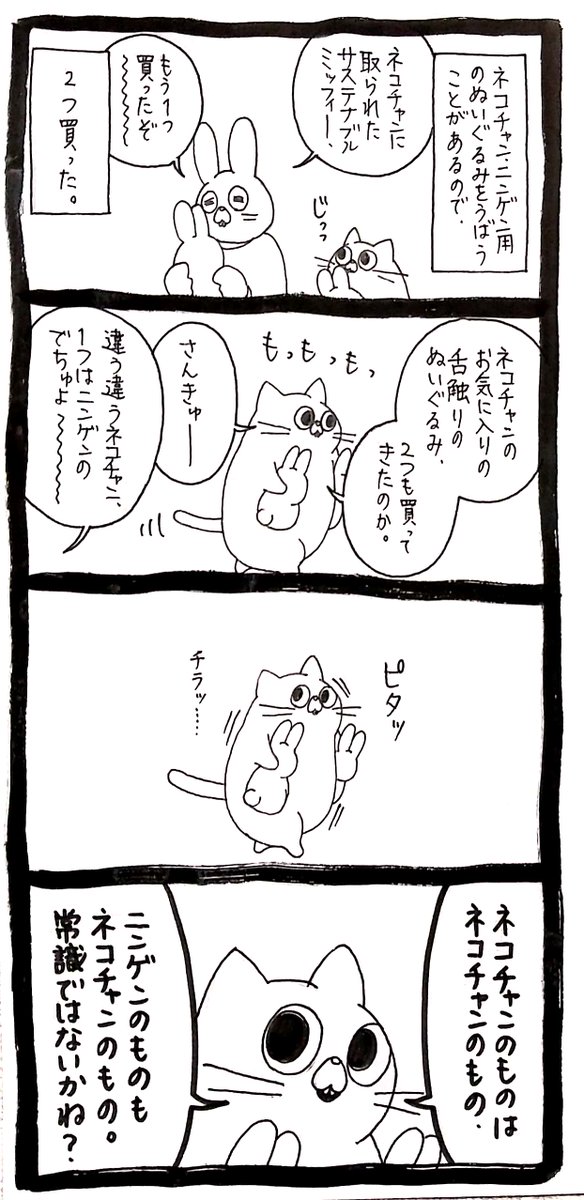 ネコチャン、ニンゲン用
のぬいぐるみをうばう
ことがあるので、
ネコチャンに
取られた
サステナブル
ミッフィー、
もう1つ
買ったぞ
〜〜〜〜
2つ買った。
じっっ
ネコチャンの
お気に入りの
舌触りの
ぬいぐるみ、
2つも買って
きたのか。
もっもっもっ
さんきゅー
違う違うネコチャン、
1つはニンゲンの
でちゅよ〜〜〜〜
ピタッ
チラッ……
ネコチャンのものは
ネコチャンのもの、
ニンゲンのものも
ネコチャンのもの。
常識ではないかね?